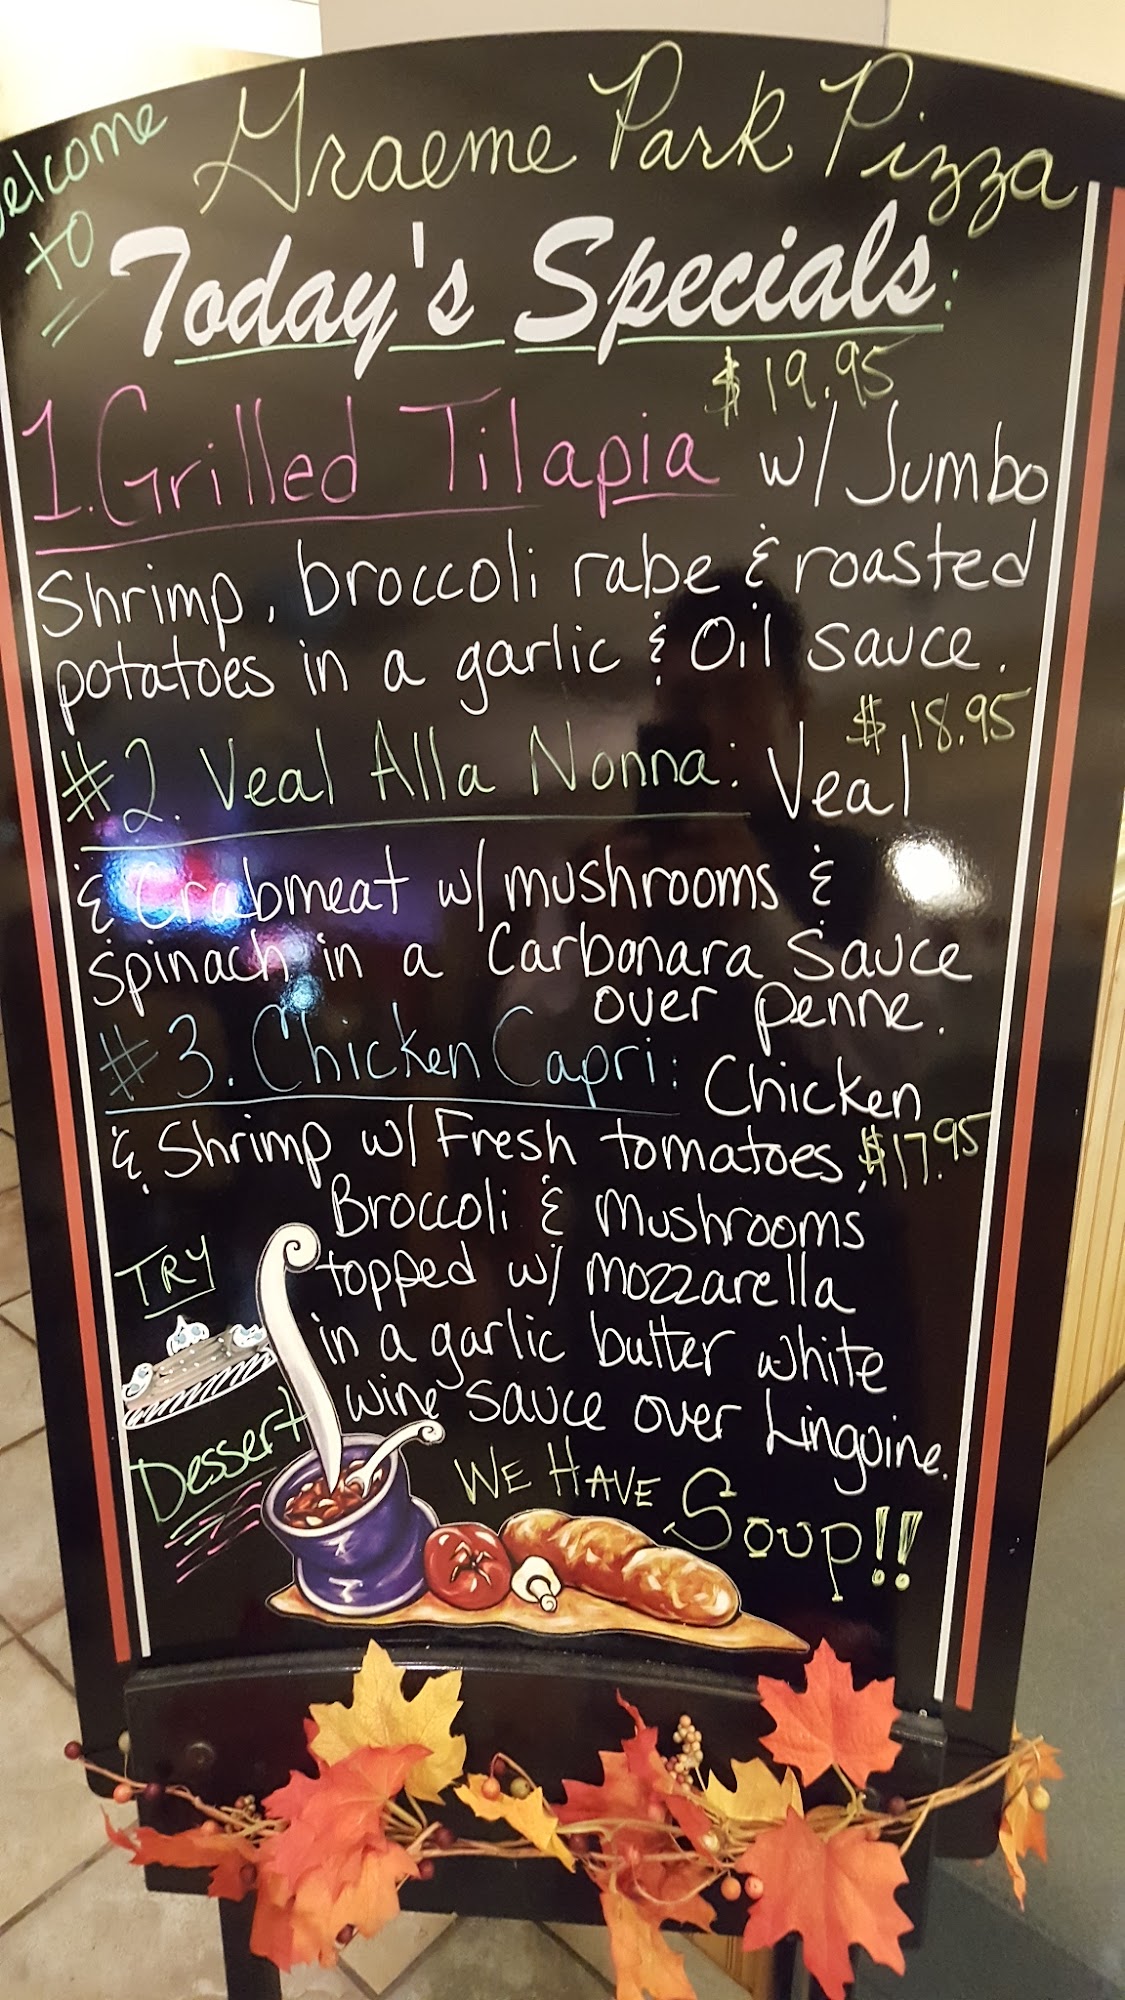 Welcome to
Graeme Park Pizza
Today's Specials:
$19.95
1. Grilled Tilapia w/ Jumbo
Shrimp, broccoli rabe & roasted
potatoes in a garlic & Oil sauce.
$18.95
#2. Veal Alla Nonna: Veal
& Crabmeat w/ mushrooms &
spinach in a Carbonara Sauce
over penne.
#3. Chicken Capri: Chicken
& Shrimp w/ Fresh tomatoes, $17.95
Broccoli & Mushrooms
topped w/ mozzarella
in a garlic butter white
wine sauce over Linguine.
TRY
Dessert
WE HAVE Soup!!